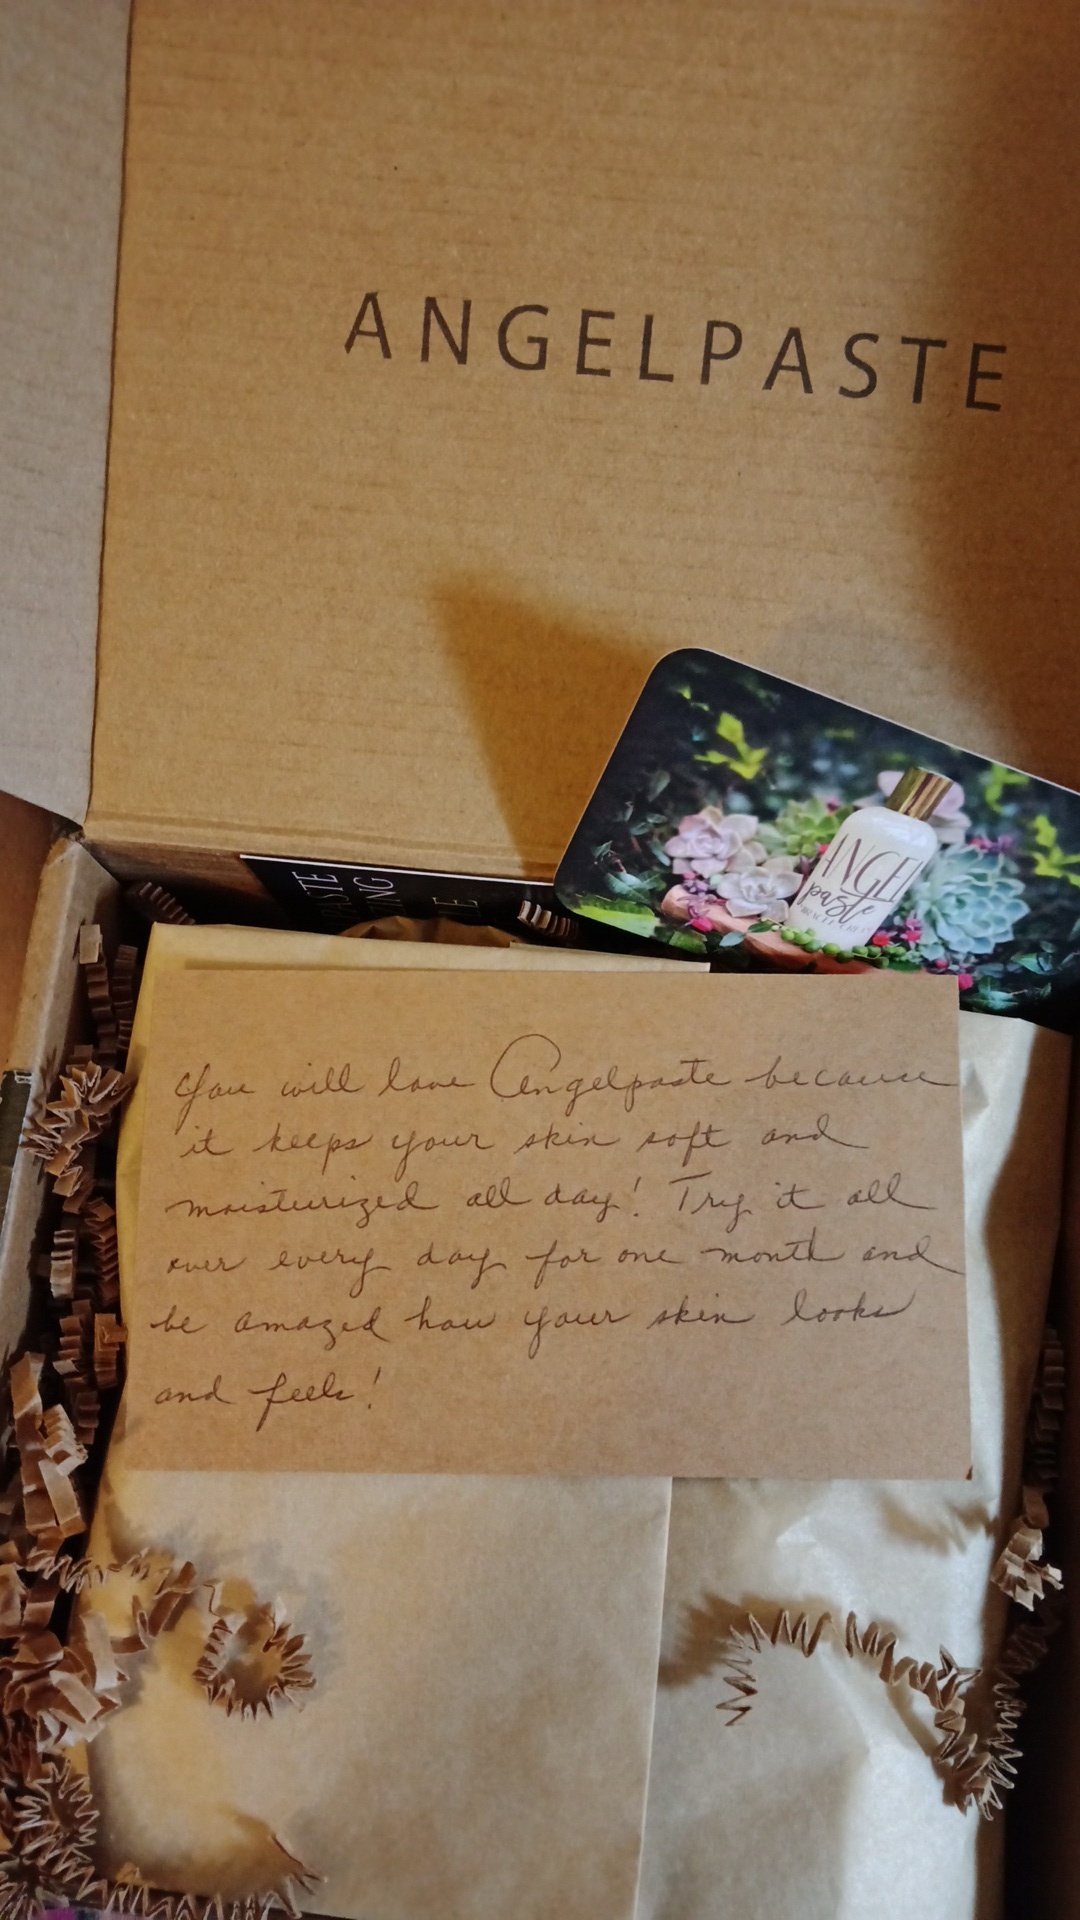 ANGELPASTE
ANGEL
paste
You will love Angelpaste because
it keeps your skin soft and
moisturized all day! Try it all
over every day for one month and
be amazed how your skin looks
and feels!